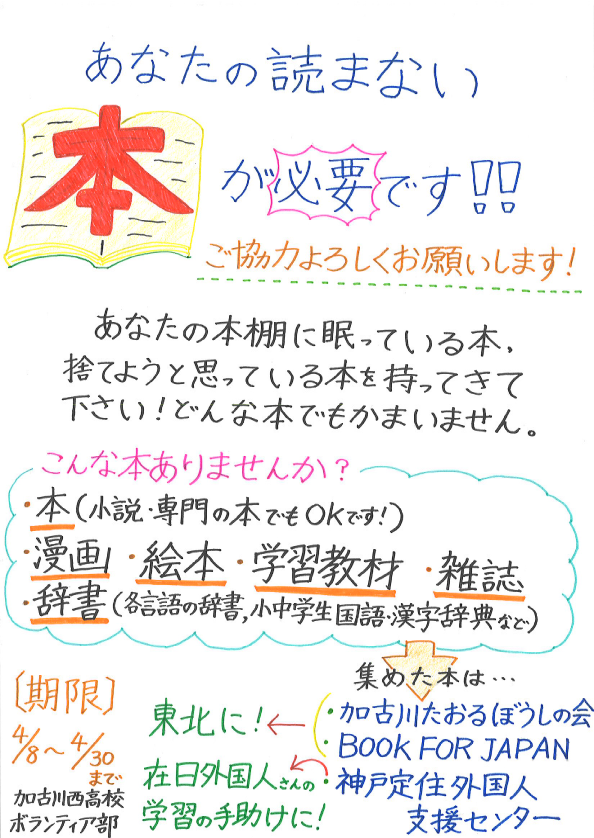 あなたの読まない
本
が必要です!!
ご協力よろしくお願いします!
あなたの本棚に眠っている本,
捨てようと思っている本を持ってきて
下さい!どんな本でもかまいません。
こんな本ありませんか?
・本(小説・専門の本でもOKです!)
・漫画 ・絵本 ・学習教材 ・雑誌
・辞書(各言語の辞書,小中学生国語・漢字辞典など)
集めた本は…
・加古川たおるぼうしの会
・BOOK FOR JAPAN
東北に!←
・神戸定住外国人
支援センター
在日外国人さんの
学習の手助けに!
〔期限〕
4/8〜4/30
まで
加古川西高校
ボランティア部